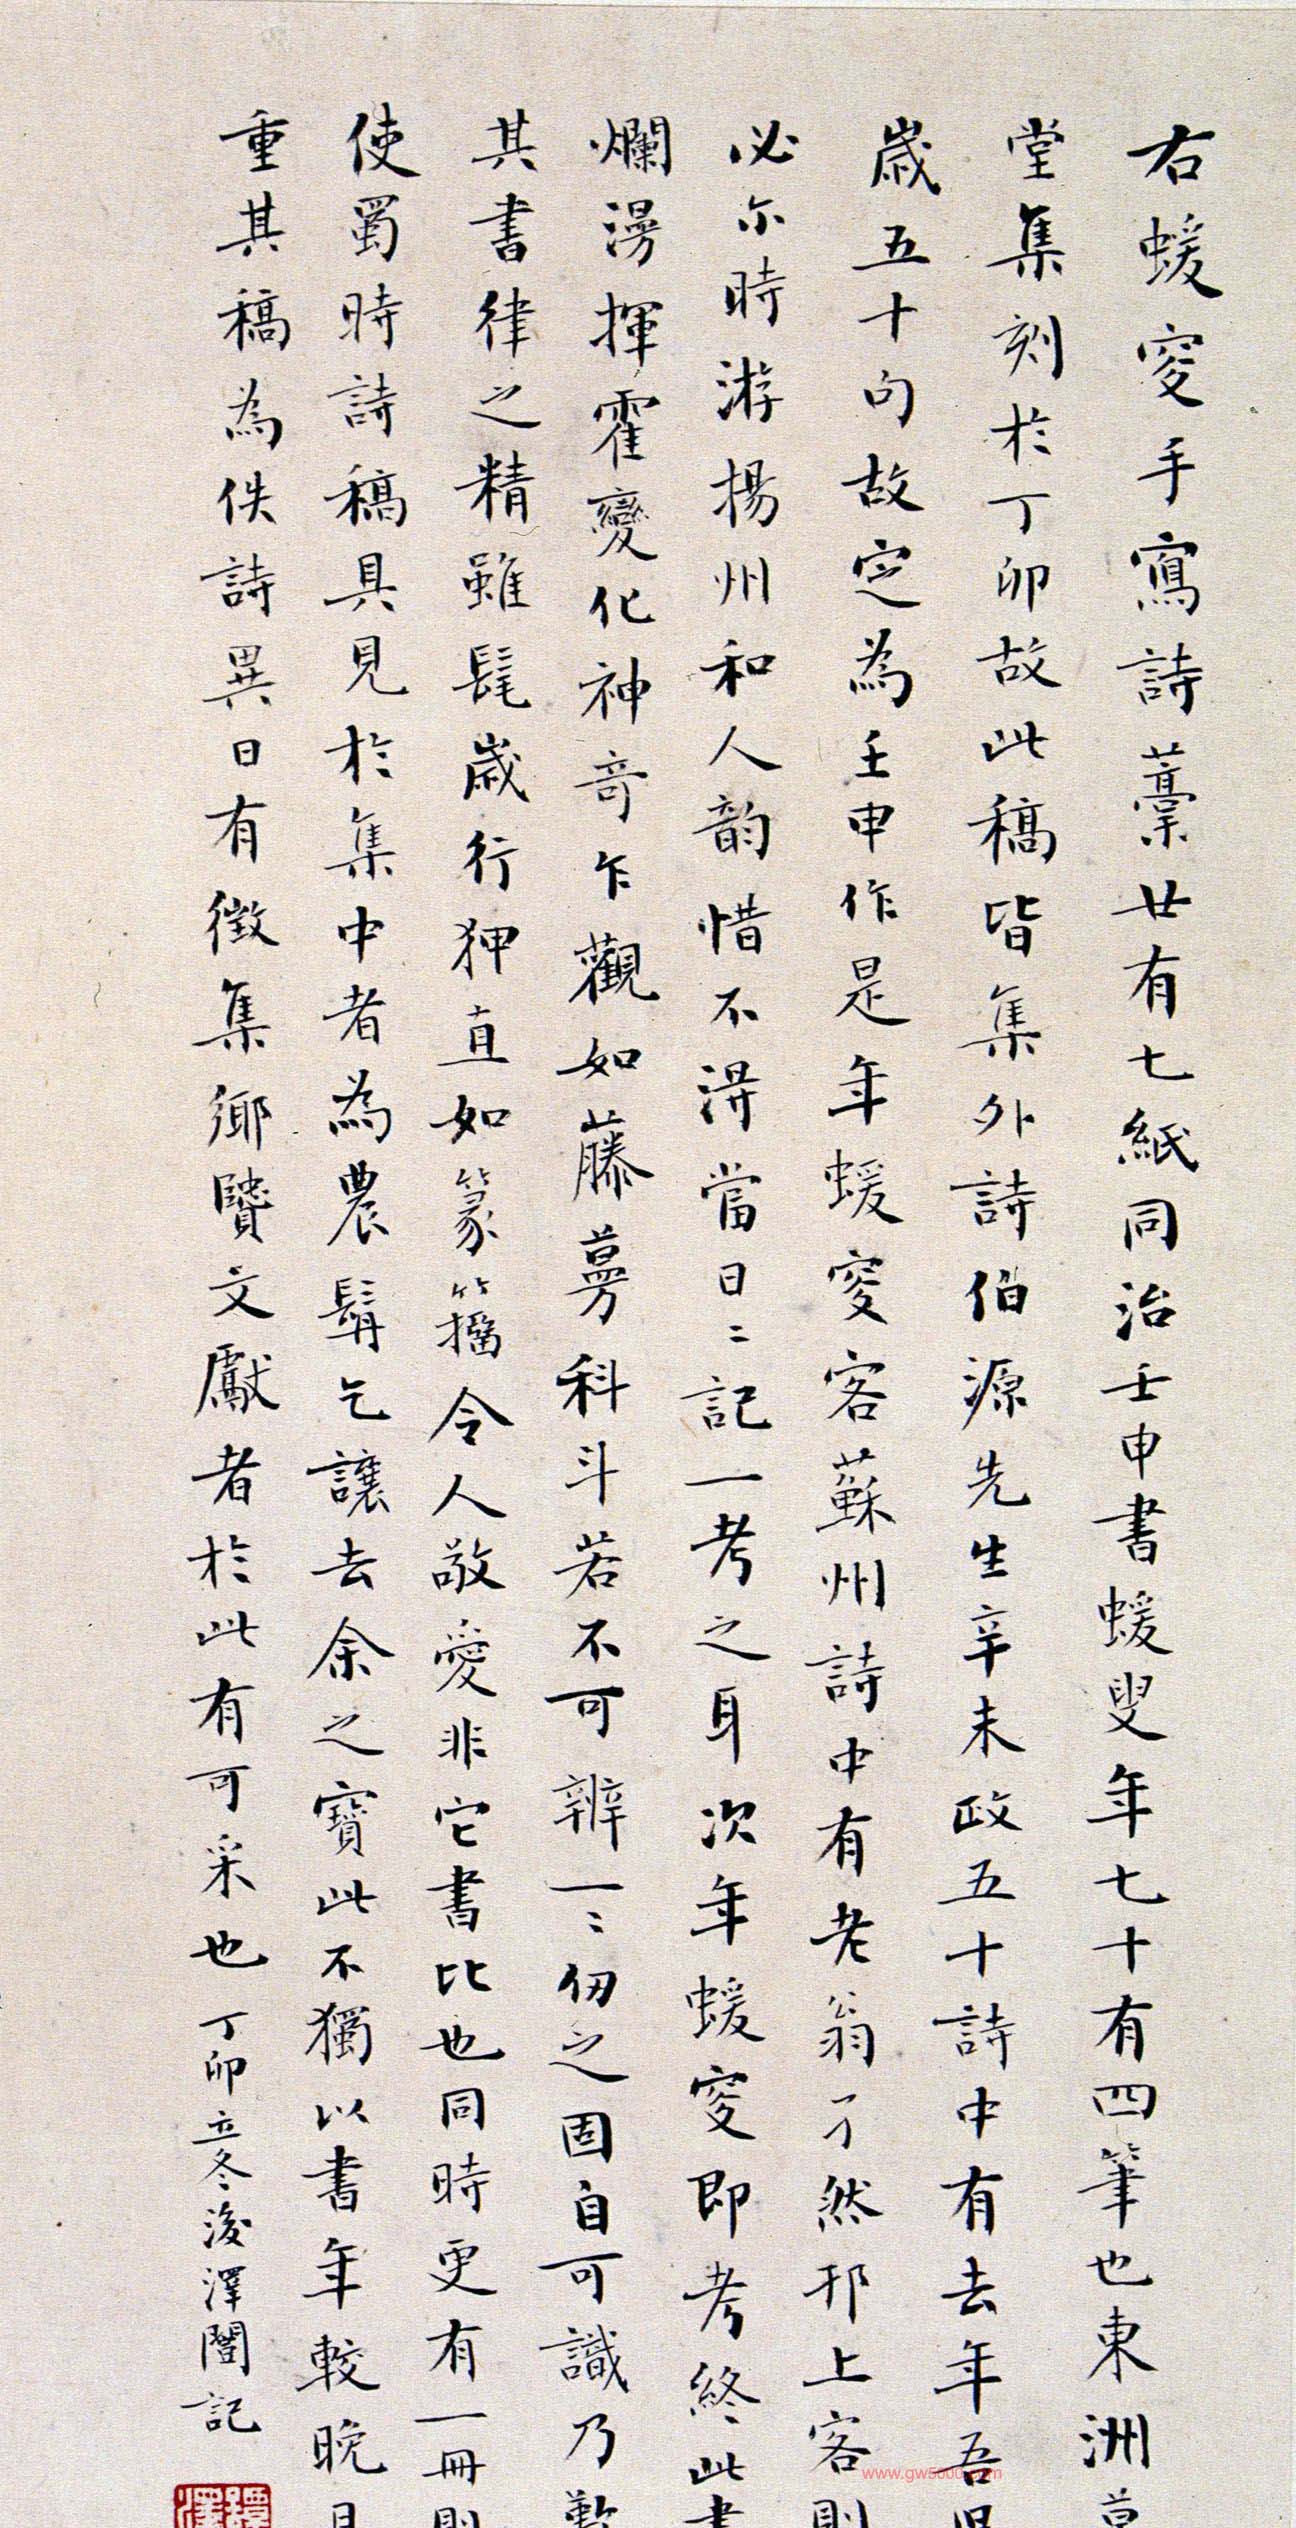 右蝯叜手寫詩藁廿有七紙同治壬申書蝯叟年七十有四筆也東洲草
堂集刻於丁卯故此稿皆集外詩伯源先生辛未政五十詩中有去年吾
歲五十句故定為壬申作是年蝯叜客蘇州詩中有老翁了然邗上客則
必尒時游揚州和人韵惜不淂當日〻記一考之耳次年蝯叜即考終此書
爛漫揮霍變化神奇乍觀如藤蔓科斗若不可辨一〻仞之固自可識乃歎
其書律之精雖髦歲行狎直如篆籀令人敬愛非它書比也同時更有一冊則
使蜀時詩稿具見於集中者為農髯乞讓去余之寶此不獨以書年較晚且
重其稿為佚詩異日有徵集鄉賢文獻者於此有可采也 丁卯立冬後澤闓記
www.gw5000.com
譚澤